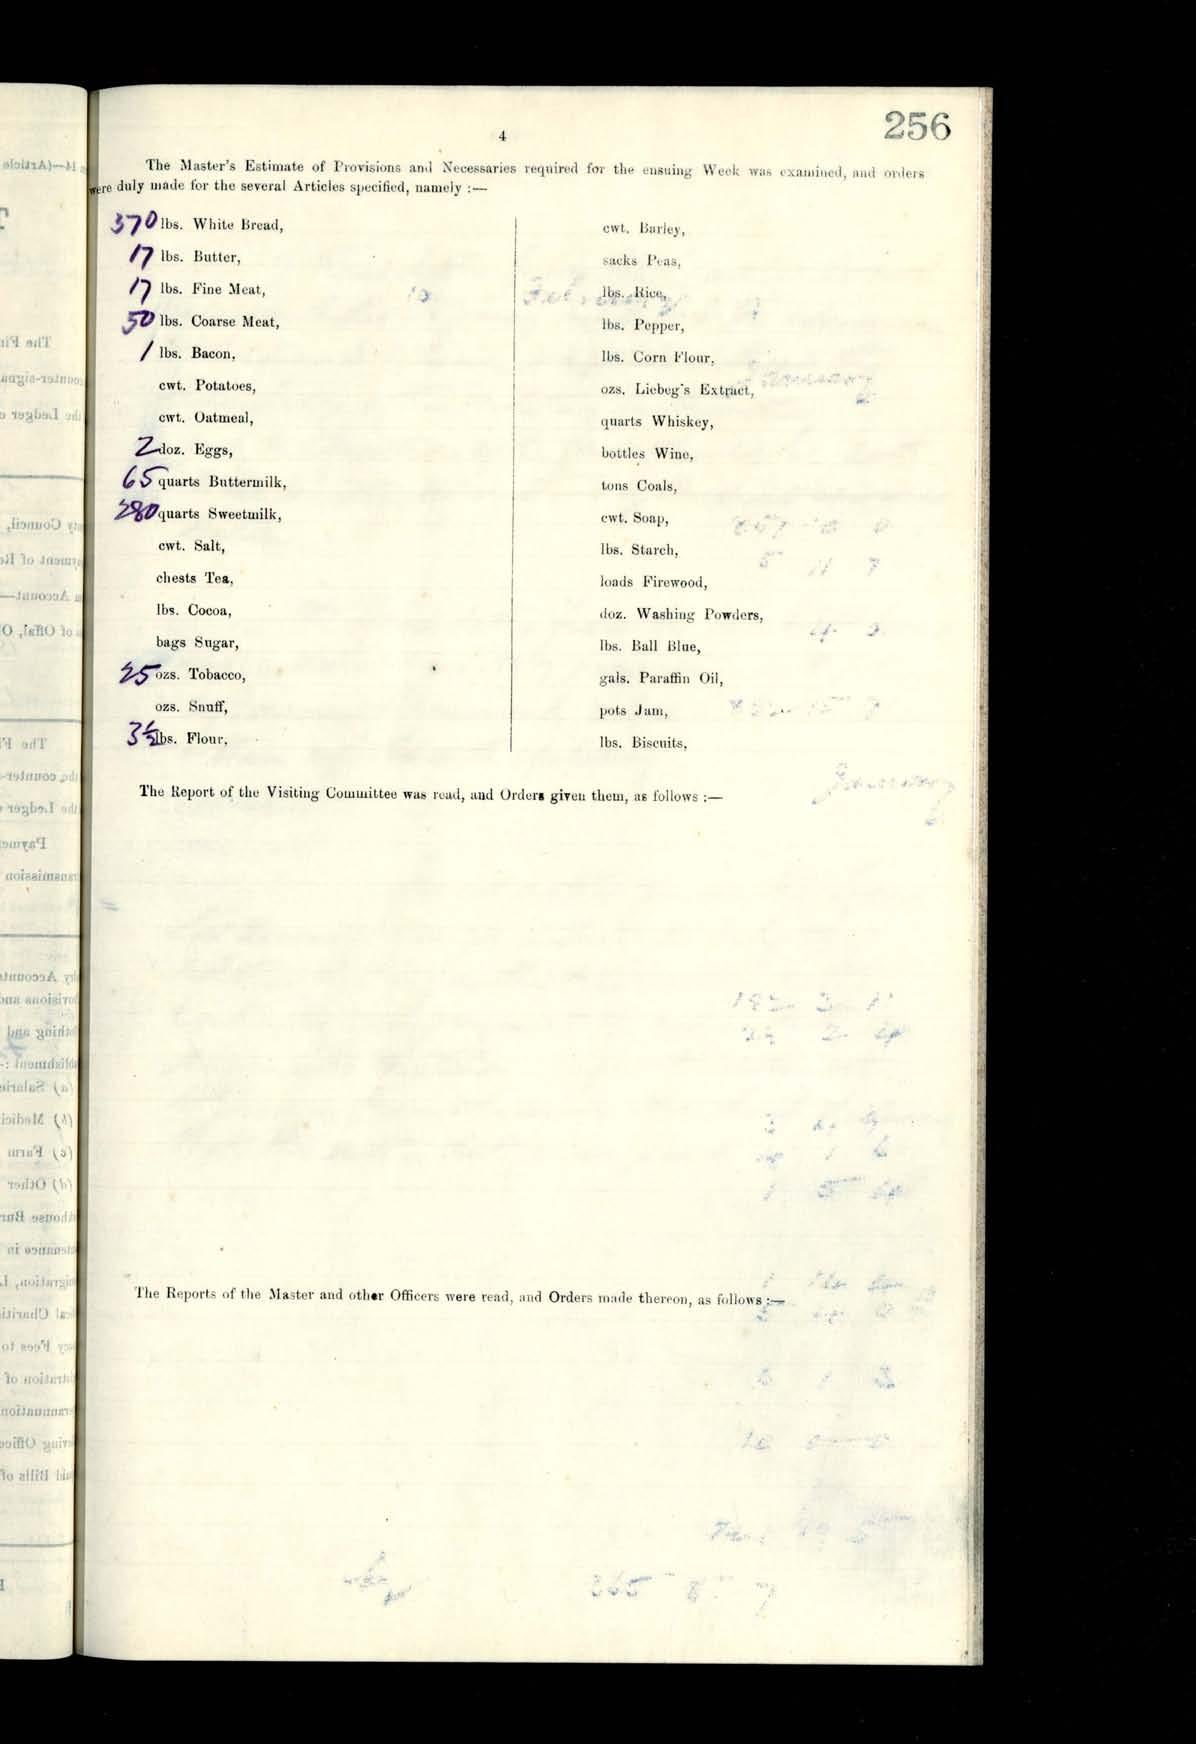 256
4
The Master's Estimate of Provisions and Necessaries required for the ensuing Week was examined, and orders
were duly made for the several Articles specified, namely :—
370 lbs. White Bread,
17 lbs. Butter,
17 lbs. Fine Meat,
50 lbs. Coarse Meat,
1 lbs. Bacon,
cwt. Potatoes,
cwt. Oatmeal,
2 doz. Eggs,
65 quarts Buttermilk,
280 quarts Sweetmilk,
cwt. Salt,
chests Tea,
lbs. Cocoa,
bags Sugar,
25 ozs. Tobacco,
ozs. Snuff,
3½ lbs. Flour,
cwt. Barley,
sacks Peas,
lbs. Rice,
lbs. Pepper,
lbs. Corn Flour,
ozs. Liebeg's Extract,
quarts Whiskey,
bottles Wine,
tons Coals,
cwt. Soap,
lbs. Starch,
loads Firewood,
doz. Washing Powders,
lbs. Ball Blue,
gals. Paraffin Oil,
pots Jam,
lbs. Biscuits,
The Report of the Visiting Committee was read, and Orders given them, as follows :—
The Reports of the Master and other Officers were read, and Orders made thereon, as follows :—